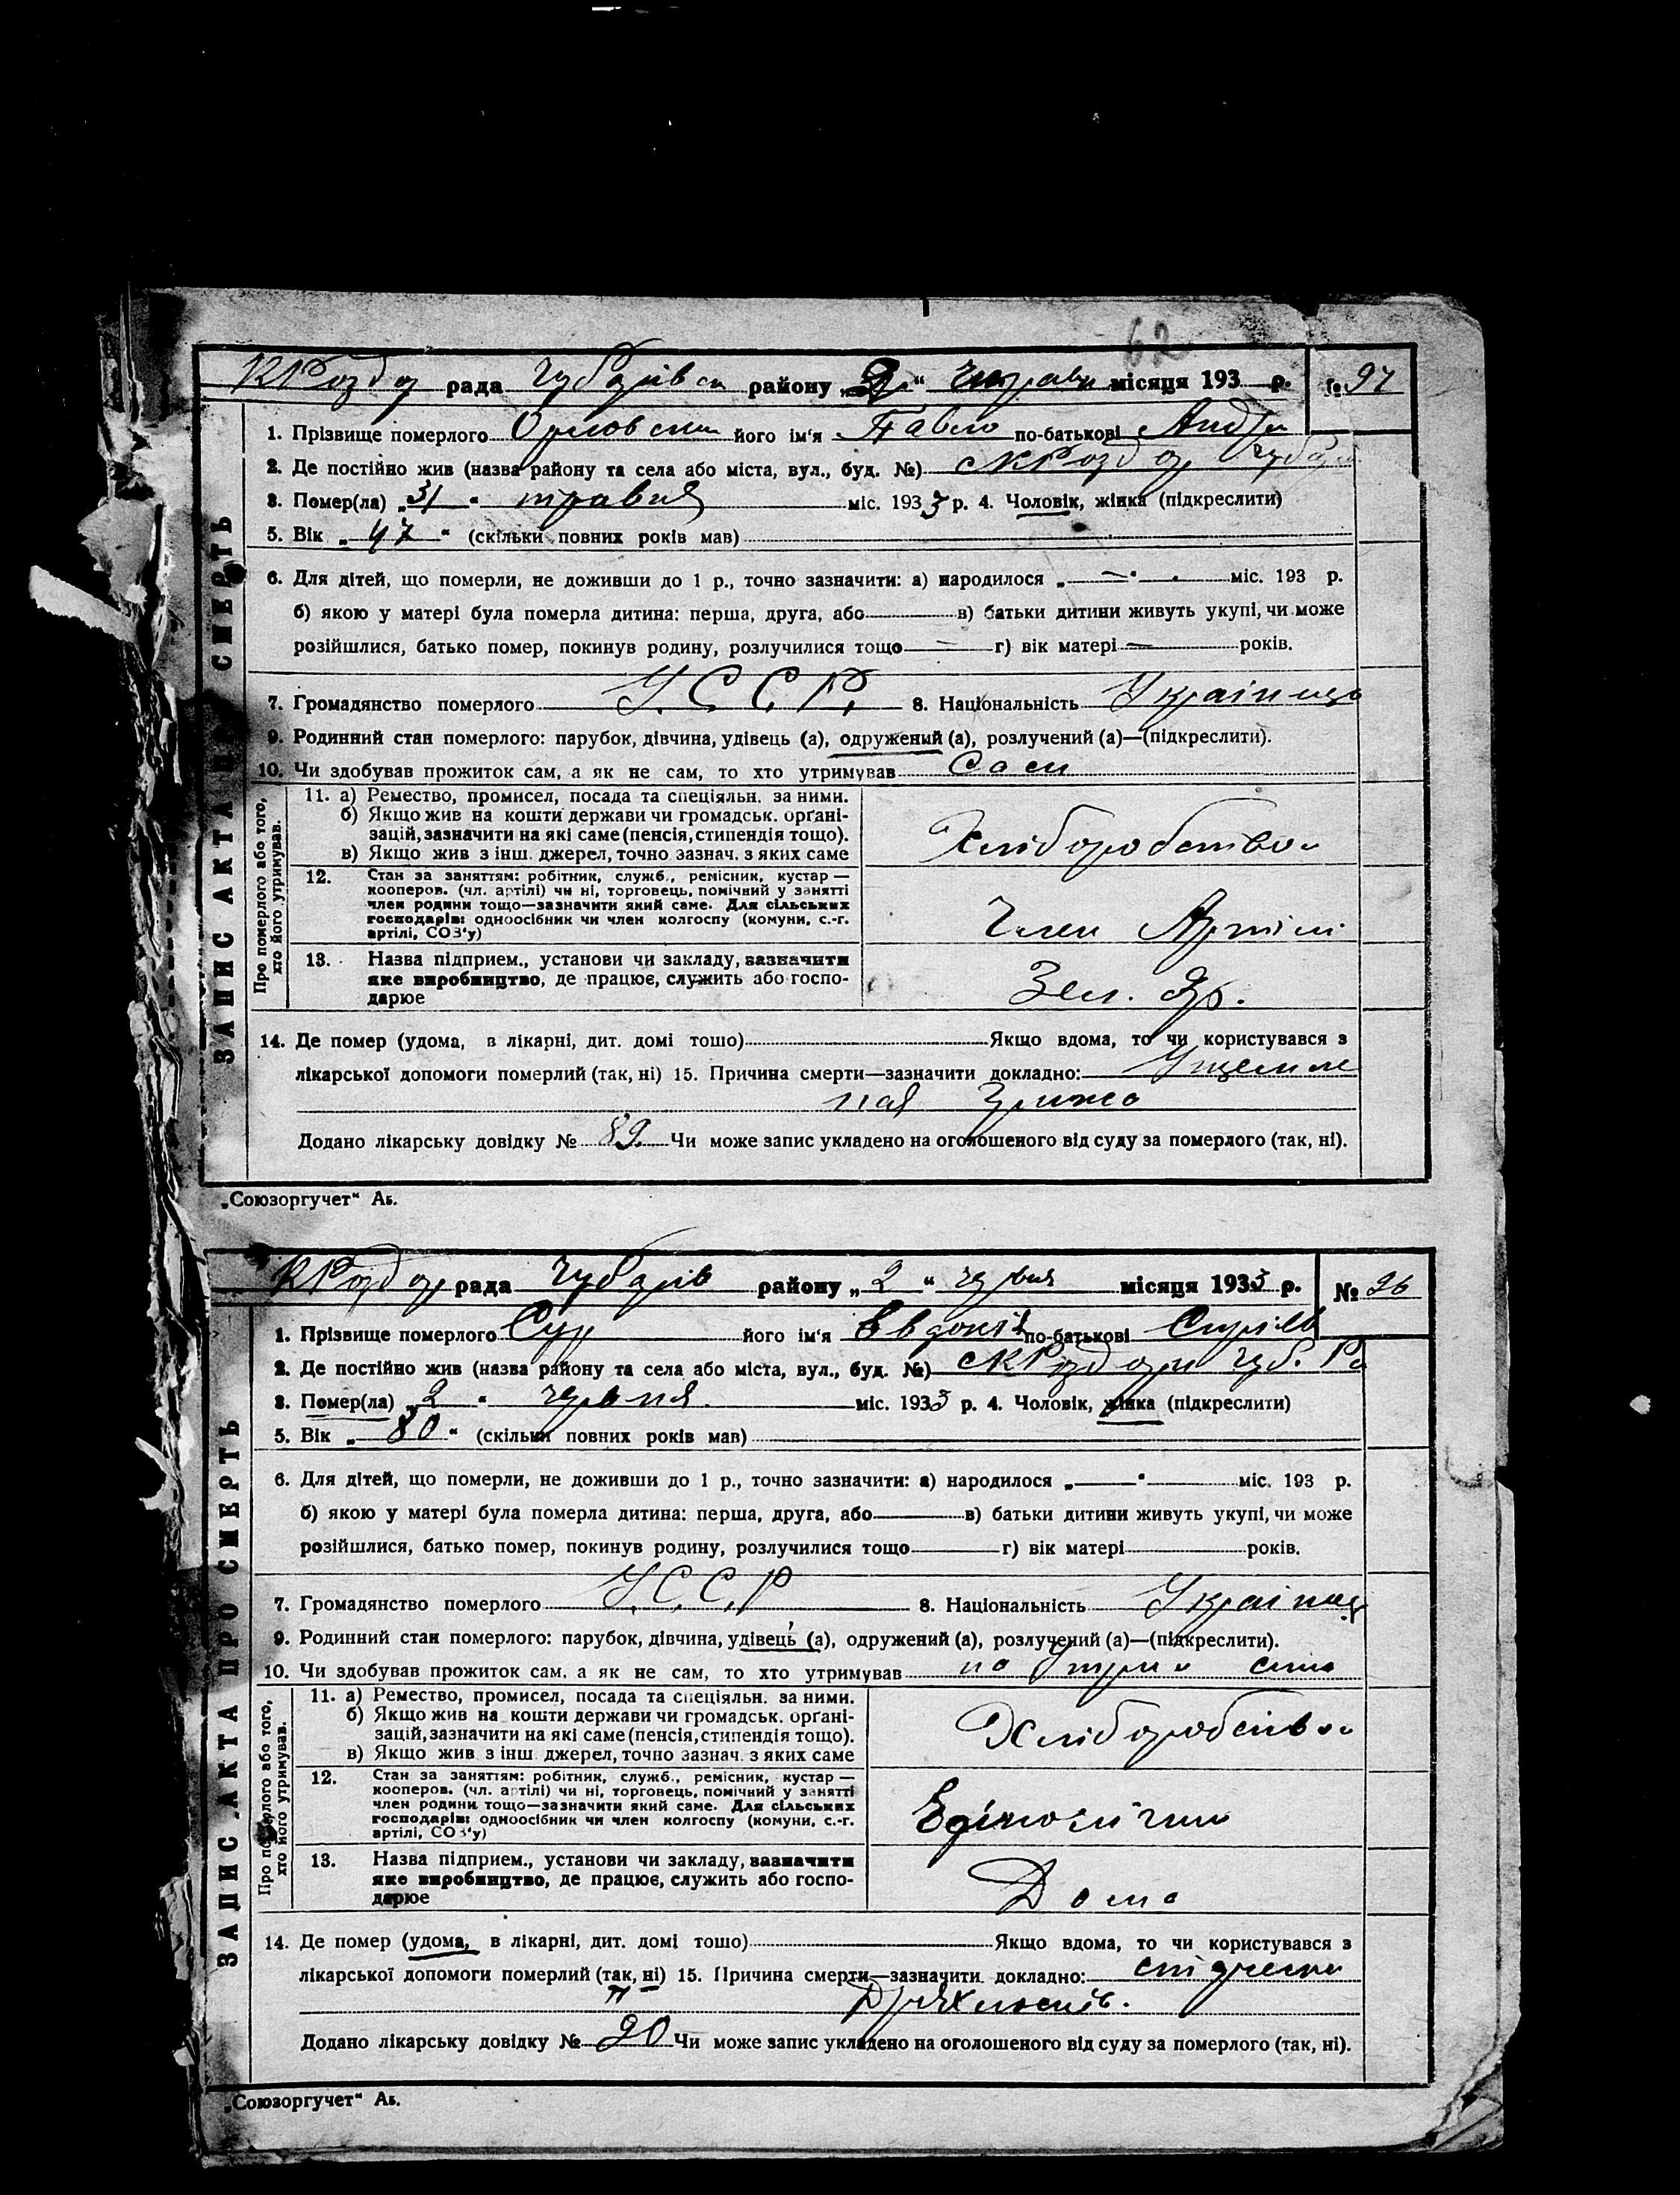 62
КРоздор рада Чубарівськ району „2“ червня місяця 193 р. № 97
1. Прізвище померлого Орловський його ім'я Павло по-батькові Андр
2. Де постійно жив (назва району та села або міста, вул., буд. №) с КРоздор Чубар
3. Помер(ла) „31“ травня міс. 1933 р. 4. Чоловік, жінка (підкреслити)
5. Вік „47“ (скільки повних років мав)
6. Для дітей, що померли, не доживши до 1 р., точно зазначити: а) народилося „—“ міс. 193 р.
б) якою у матері була померла дитина: перша, друга, або в) батьки дитини живуть укупі, чи може
розійшлися, батько помер, покинув родину, розлучилися тощо — г) вік матері — років.
7. Громадянство померлого У.С.С.Р. 8. Національність Українець
9. Родинний стан померлого: парубок, дівчина, удівець (а), одружений (а), розлучений (а)—(підкреслити).
10. Чи здобував прожиток сам, а як не сам, то хто утримував Сам
ЗАПИС АКТА ПРО СМЕРТЬ
Про померлого або того, хто його утримував.
11. а) Ремество, промисел, посада та спеціяльн. за ними.
б) Якщо жив на кошти держави чи громадськ. орґані-
зацій, зазначити на які саме (пенсія, стипендія тощо).
в) Якщо жив з інш. джерел, точно зазнач. з яких саме
Хліборобство
12. Стан за заняттям: робітник, служб., ремісник, кустар—
кооперов. (чл. артілі) чи ні, торговець, помічний у занятті
член родини тощо—зазначити який саме. Для сільських
господарів: одноосібник чи член колгоспу (комуни, с.-г.
артілі, СОЗ'у)
Член Артілі
13. Назва підприєм., установи чи закладу, зазначити
яке виробництво, де працює, служить або госпо-
дарює
Зел. Яр.
14. Де помер (удома, в лікарні, дит. домі тощо) Якщо вдома, то чи користувався з
лікарської допомоги померлий (так, ні) 15. Причина смерти—зазначити докладно: Ущемле
ная Грижа
Додано лікарську довідку № 89. Чи може запис укладено на оголошеного від суду за померлого (так, ні).
„Союзоргучет“ Аь.
КРоздор рада Чубарів району „2“ червня місяця 1933 р. № 96
1. Прізвище померлого його ім'я Евдокія по-батькові
2. Де постійно жив (назва району та села або міста, вул., буд. №) с КРоздори Чуб. Ра
3. Помер(ла) „2“ червня міс. 1933 р. 4. Чоловік, жінка (підкреслити)
5. Вік „80“ (скільки повних років мав)
6. Для дітей, що померли, не доживши до 1 р., точно зазначити: а) народилося „—“ міс. 193 р.
б) якою у матері була померла дитина: перша, друга, або в) батьки дитини живуть укупі, чи може
розійшлися, батько помер, покинув родину, розлучилися тощо г) вік матері років.
7. Громадянство померлого У.С.С.Р 8. Національність Українец
9. Родинний стан померлого: парубок, дівчина, удівець (а), одружений (а), розлучений (а)—(підкреслити).
10. Чи здобував прожиток сам, а як не сам, то хто утримував на Утрим сина
ЗАПИС АКТА ПРО СМЕРТЬ
Про померлого або того, хто його утримував.
11. а) Ремество, промисел, посада та спеціяльн. за ними.
б) Якщо жив на кошти держави чи громадськ. орґані-
зацій, зазначити на які саме (пенсія, стипендія тощо).
в) Якщо жив з інш. джерел, точно зазнач. з яких саме
Хліборобство
12. Стан за заняттям: робітник, служб., ремісник, кустар—
кооперов. (чл. артілі) чи ні, торговець, помічний у занятті
член родини тощо—зазначити який саме. Для сільських
господарів: одноосібник чи член колгоспу (комуни, с.-г.
артілі, СОЗ'у)
Едіноличник
13. Назва підприєм., установи чи закладу, зазначити
яке виробництво, де працює, служить або госпо-
дарює
Дома
14. Де помер (удома, в лікарні, дит. домі тощо) Якщо вдома, то чи користувався з
лікарської допомоги померлий (так, ні) 15. Причина смерти—зазначити докладно:
Дряхлость.
Додано лікарську довідку № 90 Чи може запис укладено на оголошеного від суду за померлого (так, ні).
„Союзоргучет“ Аь.